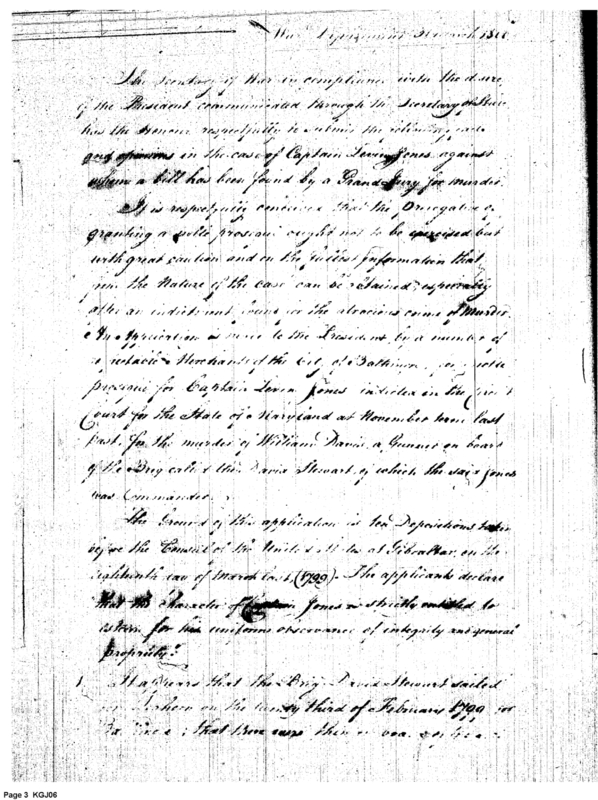 War Department March 1800
The Secretary of War in compliance with the desire
of the President communicated through the Secretary of State
has the honour respectfully to submit the following
and opinions in the case of Captain Levin Jones against
whom a bill has been found by a Grand Jury for murder.
It is respectfully conceived that the Prerogative of
granting a nolle prosequi ought not to be exercised but
with great caution and on the fullest information that
from the Nature of the case can be obtained, especially
after an indictment found for the atrocious crime of Murder.
An Application is made to the President, by a number of
respectable Merchants of the City of Baltimore for a nolle
prosequi for Captain Levin Jones indicted in the Circuit
Court for the State of Maryland at November term last
past, for the murder of William David a Gunner on board
of the Brig called the David Stewart of which the said Jones
was Commander.
The Ground of this application is ten Depositions taken
before the Consul of the United States at Gibraltar, on the
eighteenth day of March last, (1799). The applicants declare
that the character of Captain Jones is strictly entitled to
esteem for his uniform observance of integrity and general
propriety."
1. It appears that the Brig David Stewart sailed
on the twenty third of February 1799 for
that there was then on board
Page 3 KGJ06